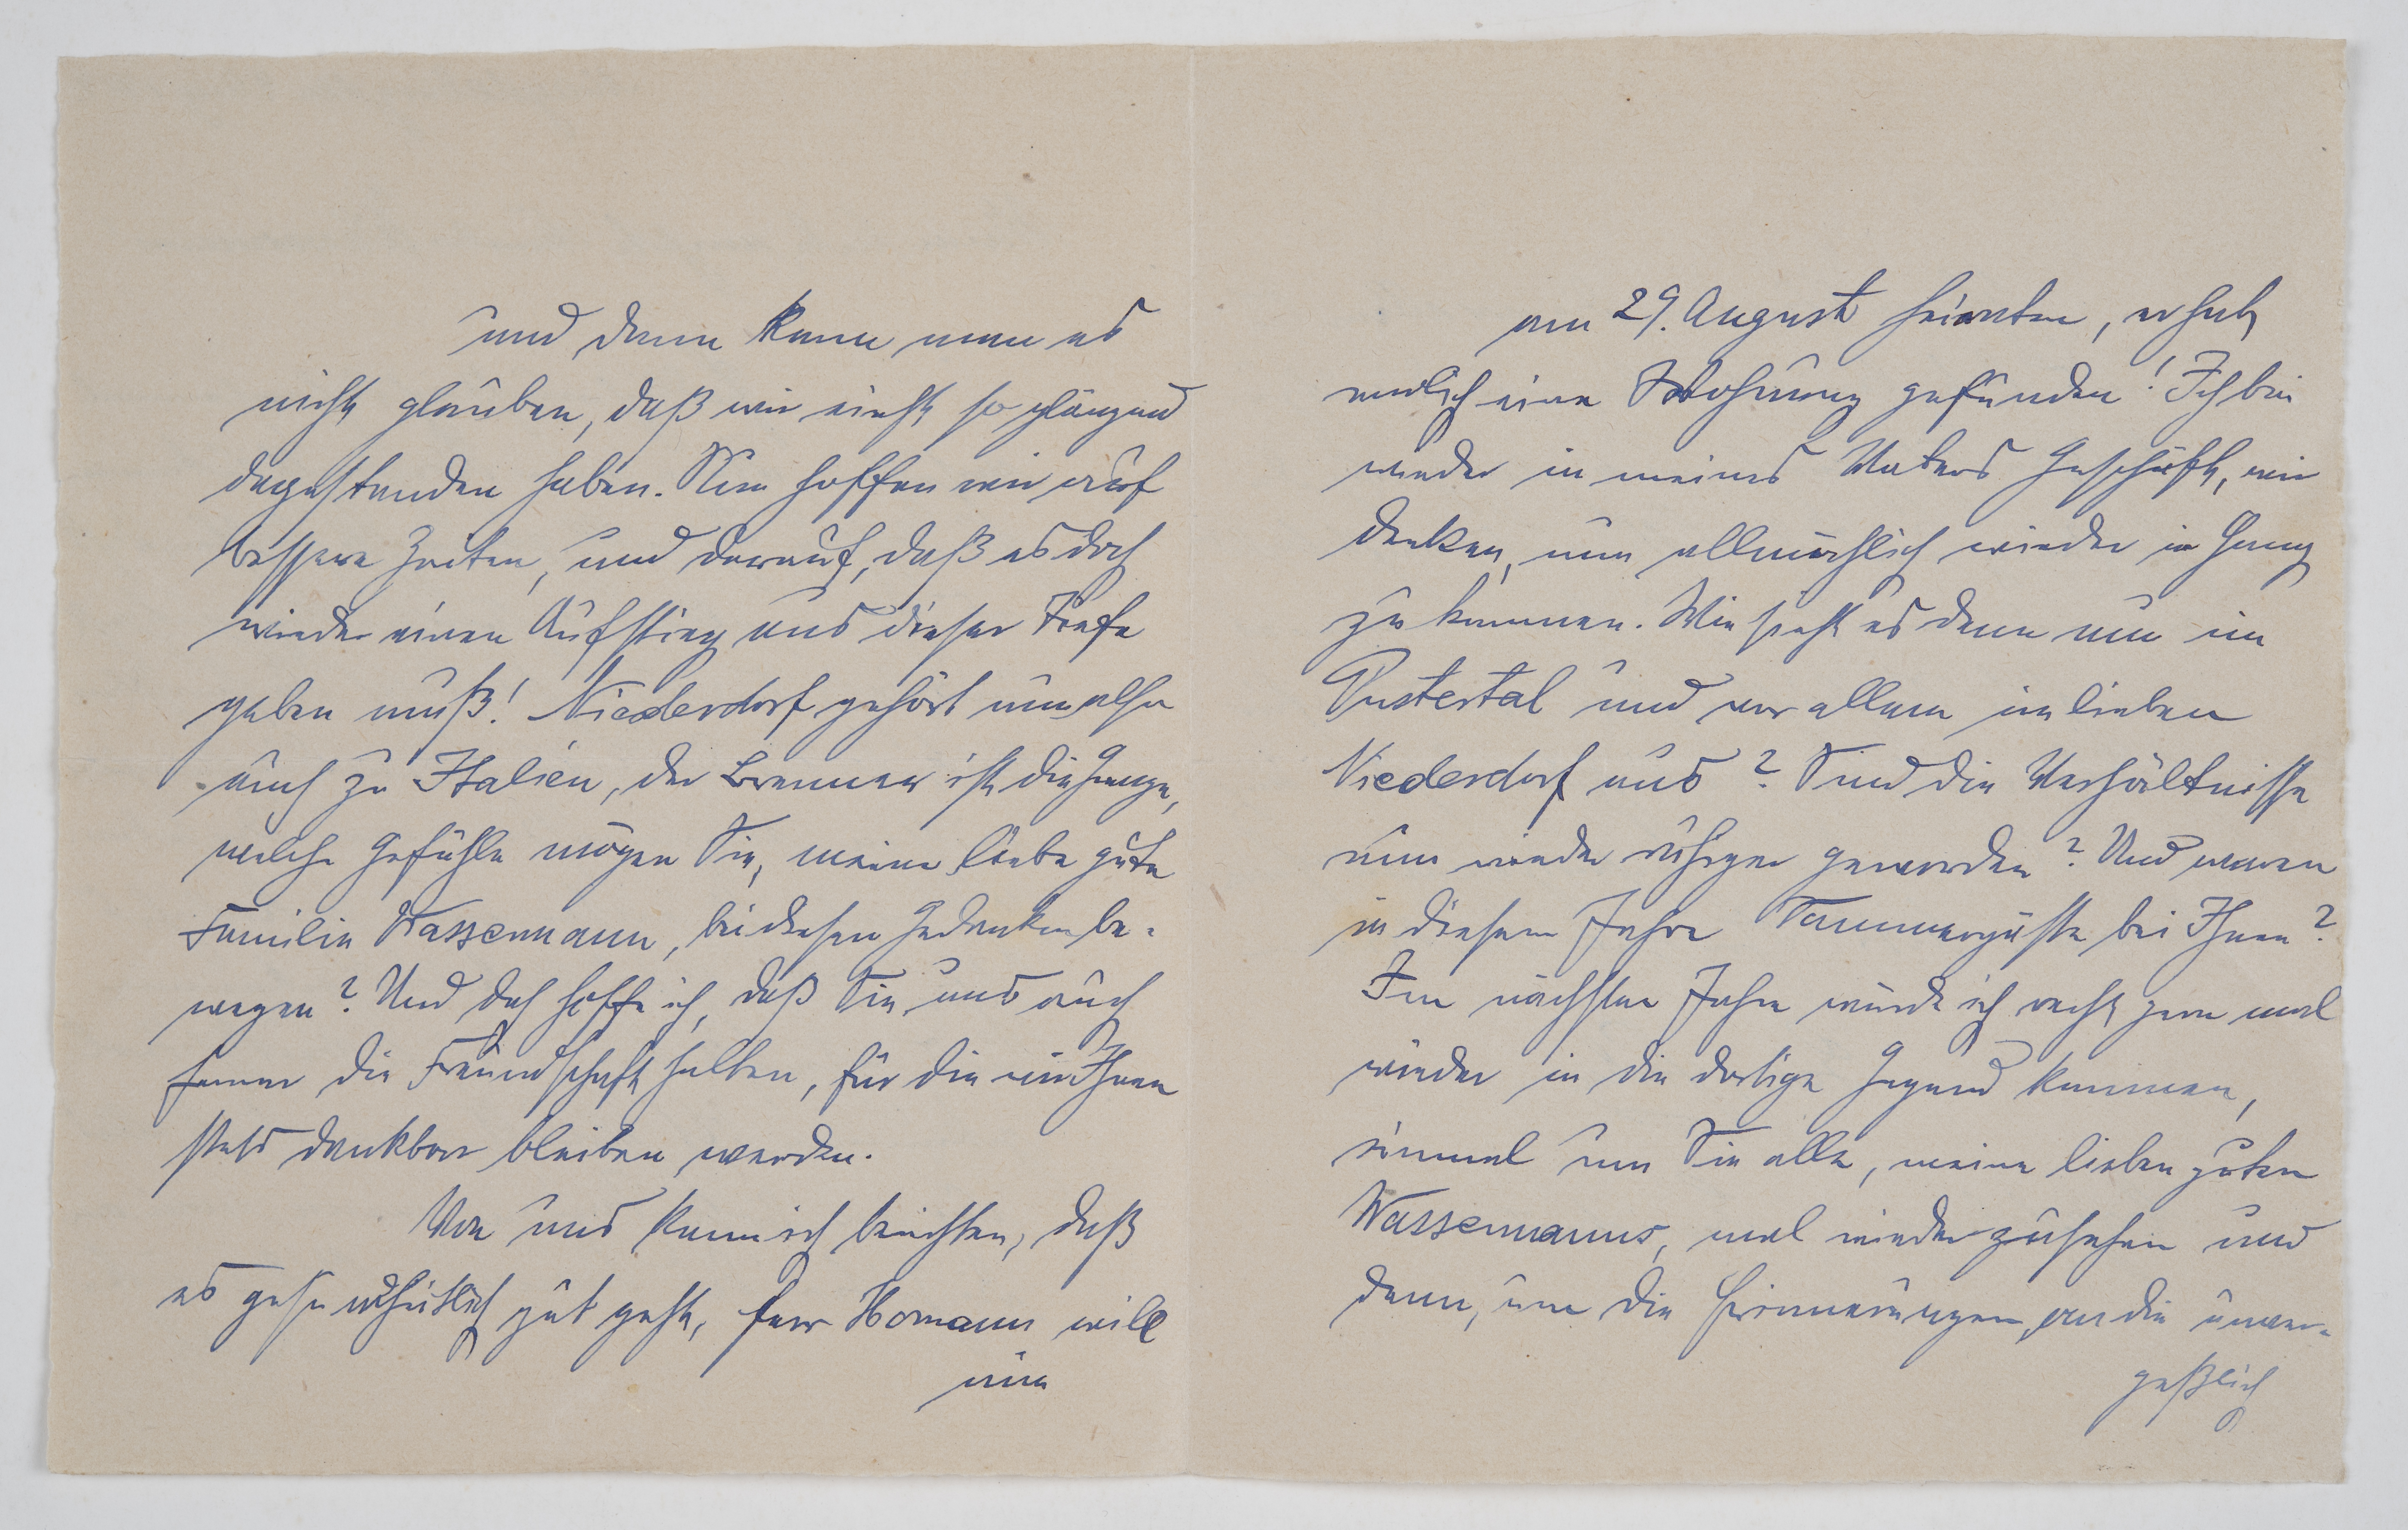 und dann kann man es
nicht glauben, daß wir einst so glänzend
dagestanden haben. Nun hoffen wir auf
bessere Zeiten, und darauf, daß es doch
wieder einen Aufstieg aus dieser Tiefe
geben muß! Niederdorf gehört nun also
auch zu Italien, der Brenner ist die Grenze,
welche Gefühle mögen Sie, meine liebe gute
Familie Wassermann, bei diesen Gedanken be-
wegen? Und doch hoffe ich, daß Sie uns auch
ferner die Freundschaft halten, für die wir Ihnen
stets dankbar bleiben werden.
Von uns kann ich berichten, daß
es gesundheitlich gut geht, Herr Homann will
nun
am 29. August heiraten, er hat
endlich eine Wohnung gefunden! Ich bin
wieder in meines Vaters Geschäft, wir
denken, nun allmählich wieder in Gang
zu kommen. Wie sieht es denn nun im
Pustertal und vor allem im lieben
Niederdorf aus? Sind die Verhältnisse
nun wieder ruhiger geworden? Und waren
in diesem Jahre Sommergäste bei Ihnen?
Im nächsten Jahre würde ich recht gern mal
wieder in die dortige Gegend kommen,
einmal um Sie alle, meine lieben guten
Wassermanns, mal wiederzusehen und
dann, um die Erinnerungen an die unver-
geßlich